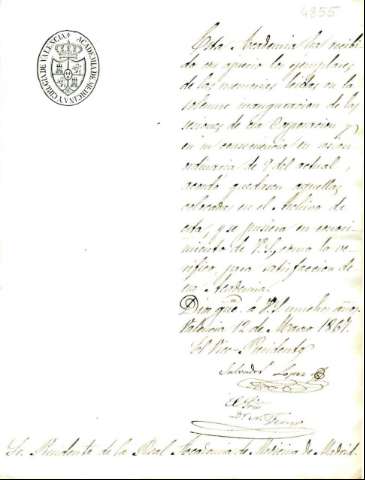 4855
ACADEMIA DE MEDICINA Y CIRUGIA DE VALENCIA
Esta Academia ha recibi-
do con aprecio los ejemplares
de las memorias leidas en la
solemne inauguracion de las
sesiones de esa Corporacion y
en su consecuencia en sesion
ordinaria de 9 del actual,
acordó quedasen aquellas
colocadas en el Archivo de
esta, y se pusiera en conoci-
miento de V.S, como lo ve-
rifica para satisfaccion de
esa Academia.
Dios gue. á V.S muchos años.
Valencia 12 de Marzo 1867.
El Vice-Presidente
Salvador Lopez
El Srio
Sr. Presidente de la Real Academia de Medicina de Madrid.